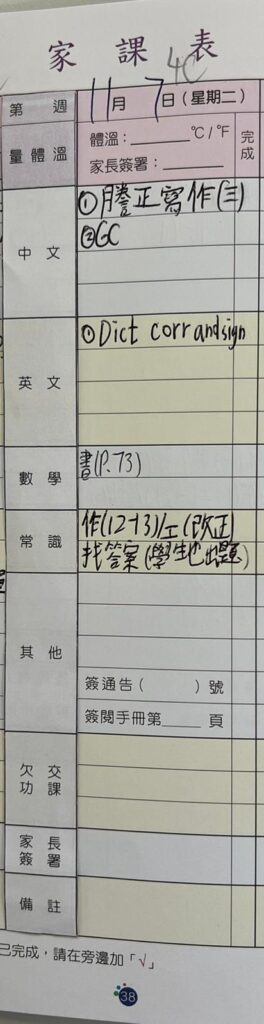 家課表
4C
第 週 11月7日(星期二)
量體溫 體溫:______℃/℉ 完成
家長簽署:______
中文 ①謄正寫作(三)
②GC
英文 ①Dict corr and sign
數學 書(P.73)
常識 作(12-13)/工(改正)
找答案(學生出題)
其他
簽通告( )號
簽閱手冊第____頁
欠交功課
家長簽署
備註
已完成,請在旁邊加「√」
38